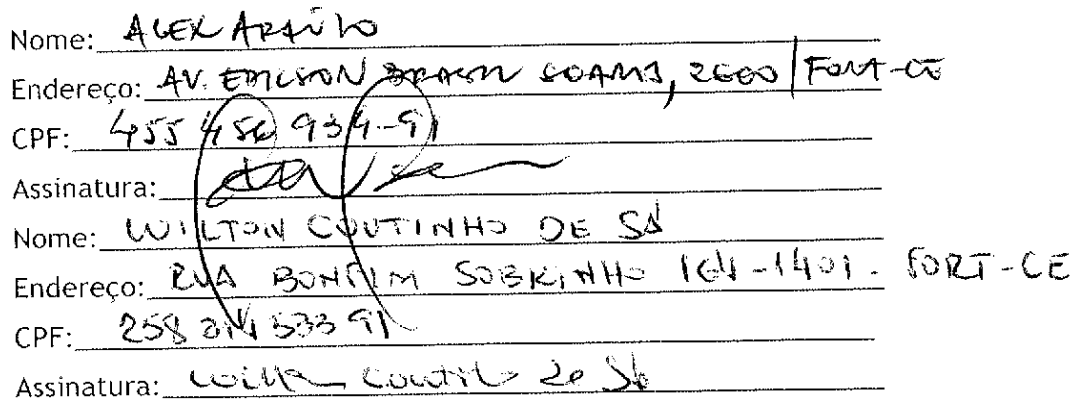 Nome: ALEX ARAÚJO
Endereço: AV. EDILSON BRASIL SOARES, / FORT-CE
CPF: 455 456 934-91
Assinatura:
Nome: WILTON COUTINHO DE SÁ
Endereço: RUA BONFIM SOBRINHO -1401 - FORT-CE
CPF: 258 533 91
Assinatura: Coutinho de Sá